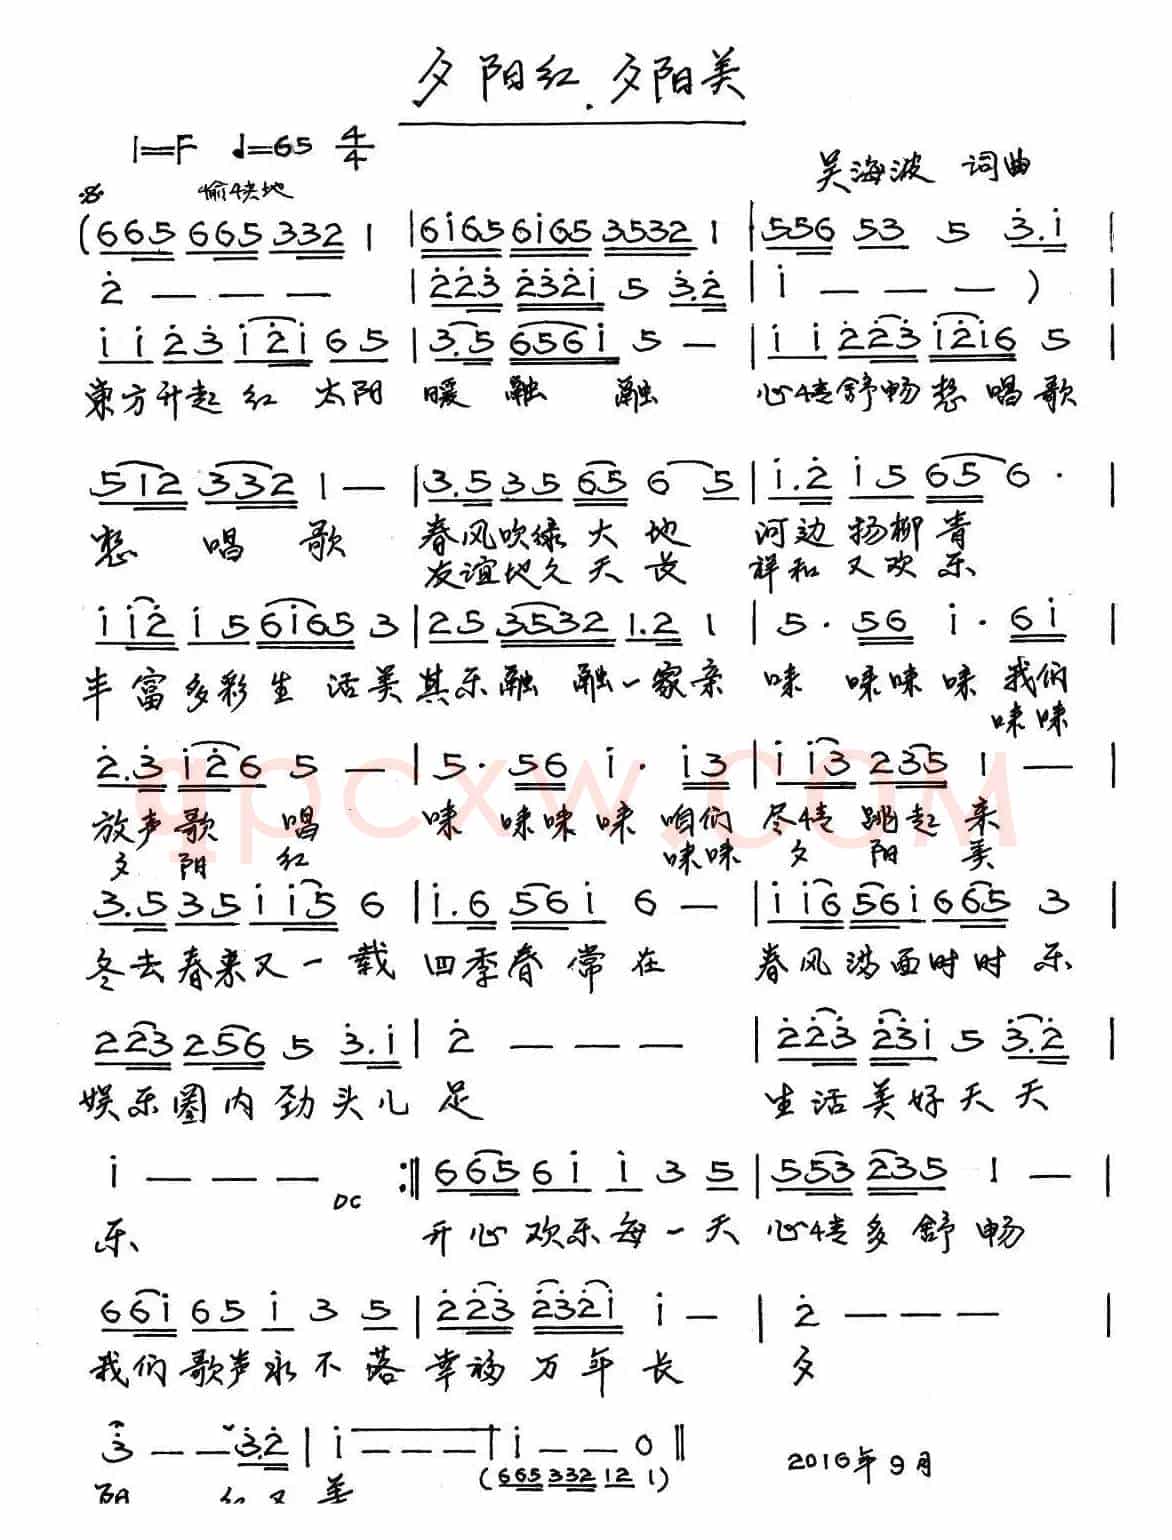 夕阳红.夕阳美
1=F ♩=65 4/4
吴海波 词曲
愉快地
(665 665 332 1 | 6i65 6i65 3532 1 | 556 53 5 3.i |
2 — — — | 223 2321 5 3.2 | i — — — ) |
i i 2 3 i 2 i 6 5 | 3.5 656i 5 — | i i 223 i2i6 5 |
東方升起红 太阳 暖 融 融 心情舒畅想 唱歌
512 332 1 — | 3.5 35 65 6 5 | i.2 i5 656 · |
想 唱 歌 春风吹绿大地 河边扬柳青
友谊地久天长 祥和又欢乐
i i2 i5 6i65 3 | 25 3532 1.2 1 | 5· 56 i· 6i |
丰富多彩生活美其乐融 融一家亲 味 味味味 我们
味味
2.3 i26 5 — | 5· 56 i· i3 | i i3 235 1 — |
放声歌 唱 味 味味味 咱们 尽情跳起来
夕阳 红 味味 夕阳美
3.5 35 i i5 6 | i.6 56i 6 — | i i6 56i 665 3 |
冬去春来又一载 四季春常在 春风满面时时乐
223 256 5 3.i | 2 — — — | 223 23i 5 3.2 |
娱乐圈内劲头儿足 生活美好天天
i — — — :‖ 665 6i i 3 5 | 553 235 1 — |
DC
乐 开心欢乐每一天 心情多舒畅
66i 65 i 3 5 | 223 232i i — | 2 — — — |
我们歌声永不落 幸福万年长 夕
3 — — 3.2 | i — — — | i — — 0 ‖
(665 332 12 1)
2016年9月
阳 红又美
qpcxw.com